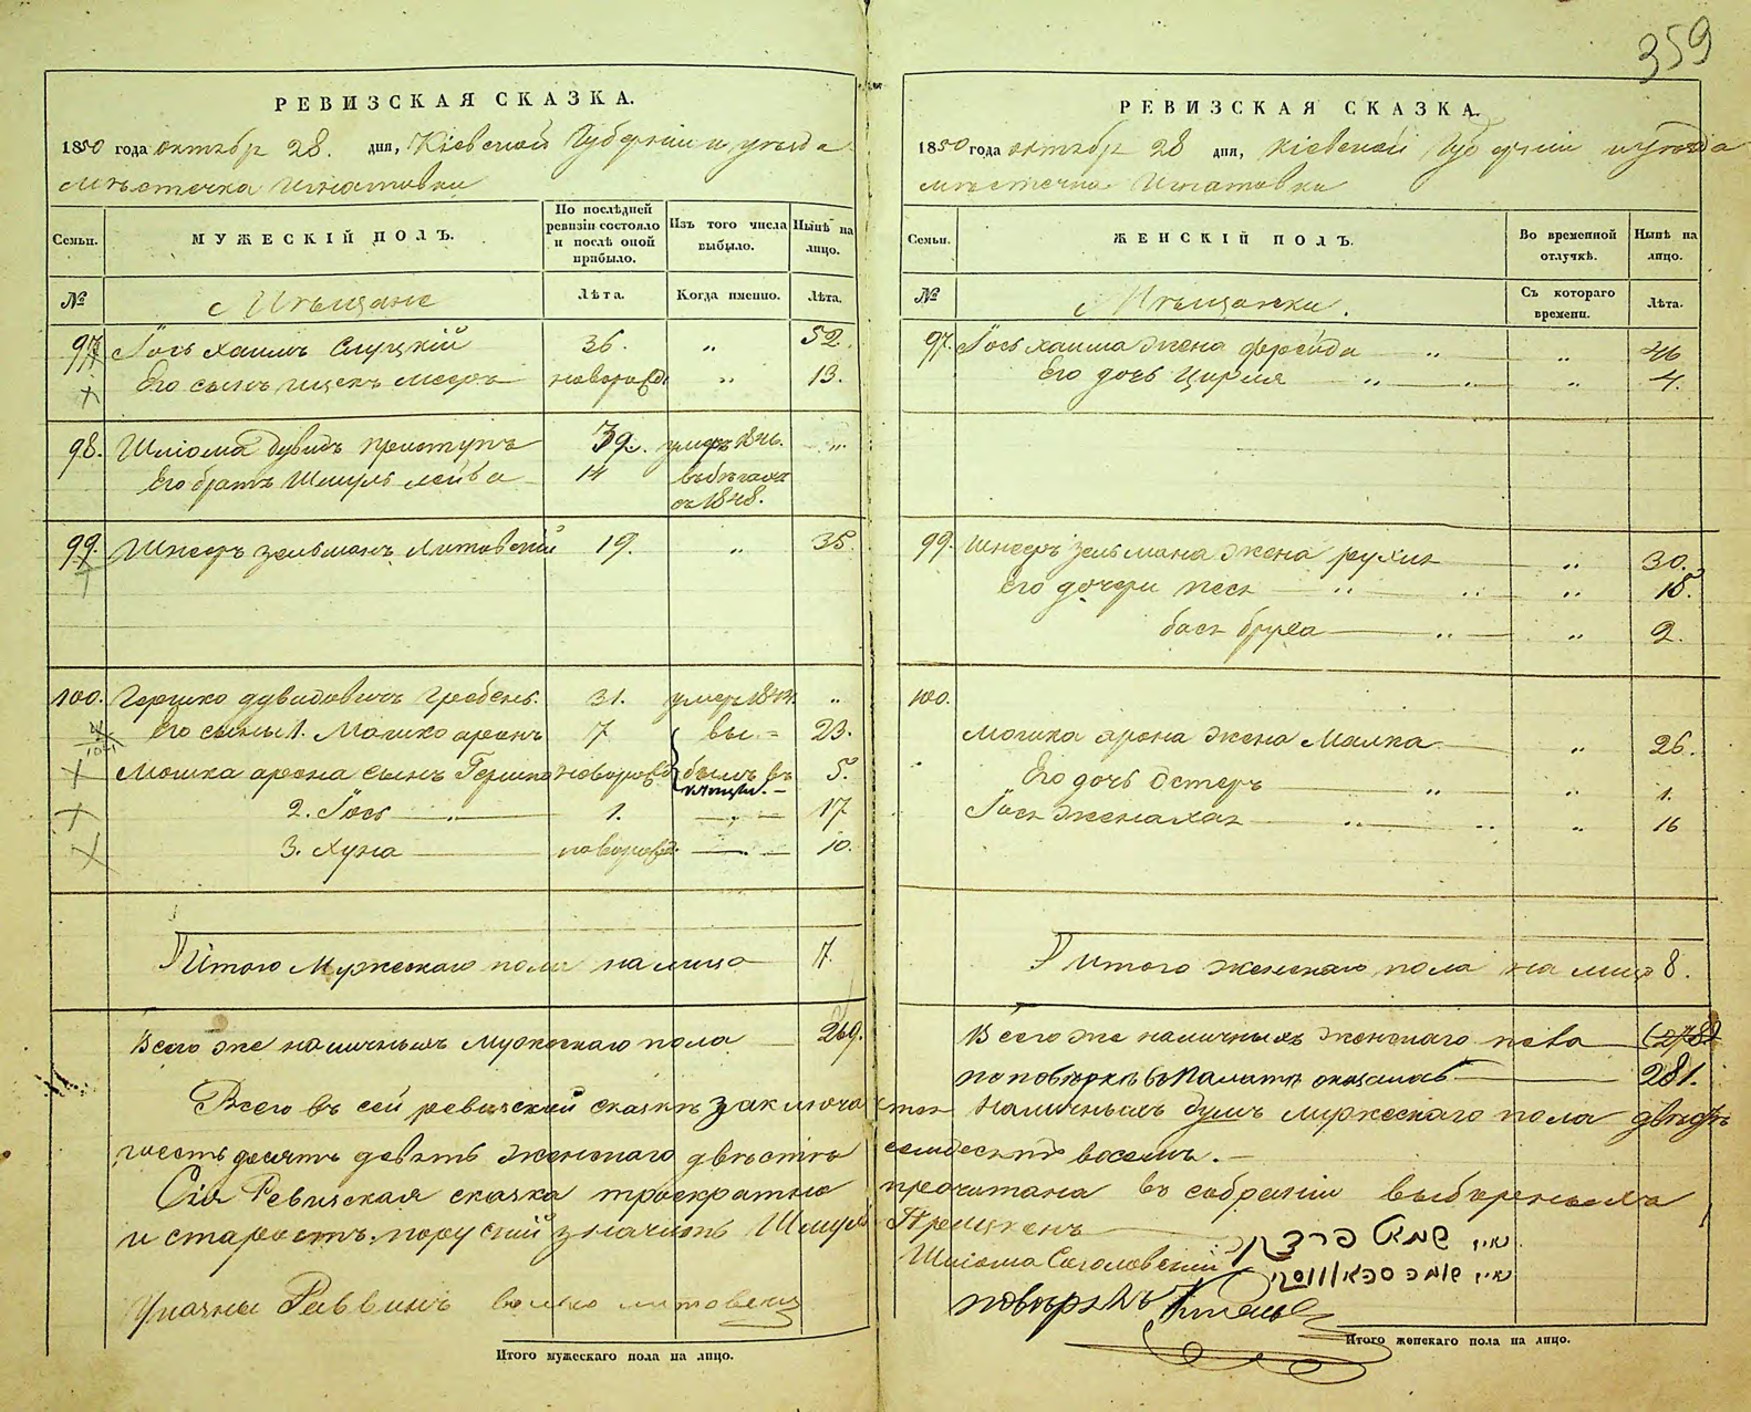 359
РЕВИЗСКАЯ СКАЗКА.
1850 года октябр 28. дня, Кіевской Губерніи и уезда
местечка Игнатовки
Семьи.
МУЖЕСКІЙ ПОЛЪ.
По послѣдней ревизіи состояло и послѣ оной прибыло.
Изъ того числа выбыло.
Нынѣ на лицо.
№
Мѣщане
Лѣта.
Когда именно.
Лѣта.
97. Іось хаимъ Слуцкій 36. " 52.
Его сынъ ицекъ мееръ новорожд. " 13.
98. Шліома дувидъ приступъ 39. умеръ 1846. "
Его братъ Шмуль лейба 14
въ 1848.
99. Шнееръ зельманъ Литовскій 19. " 35.
100. Гершко дувидовичъ Гребень. 31. умеръ "
Его сыны 1. Мошко аронъ 7 вы = 23.
Мошка арона сынъ Гершко новорожд. былъ въ 5.
2. Іось 1. 17
3. Хуна новорожд. 10.
Итого Мужескаго пола на лицо 7.
Всего же наличныхъ мужескаго пола 269.
РЕВИЗСКАЯ СКАЗКА.
1850 года октябр 28 дня, Кіевской Губерніи и уезда
местечка Игнатовки
Семьи.
ЖЕНСКІЙ ПОЛЪ.
Во временной отлучкѣ.
Нынѣ на лицо.
№
Мѣщанки.
Съ котораго времени.
Лѣта.
97. Іось хаима жена фрейда " " 46
Его дочь Цирля " " 4.
99. Шнееръ зельмана жена рухля " 30.
Его дочери песя " " 15.
бася бруха " " 2.
100.
Мошка арона жена Малка " 26.
Его дочь Естеръ " " 1.
Іося жена хая " " 16
Итого женскаго пола на лицо 8.
Всего же наличныхъ женскаго пола (278)
по повѣркѣ въ Палатѣ оказалось 281.
Всего въ сей ревизской сказкѣ заключается наличныхъ душъ мужескаго пола двѣсти
шесть десятъ девять женскаго двѣсти семдесятъ восемь.
Сія Ревизская сказка троекратно прочитана въ собраніи выборныхъ
и старостъ. Шмуль
Шліома Соколовскій
Раввинъ
повѣрялъ
Итого мужескаго пола на лицо.
Итого женскаго пола на лицо.